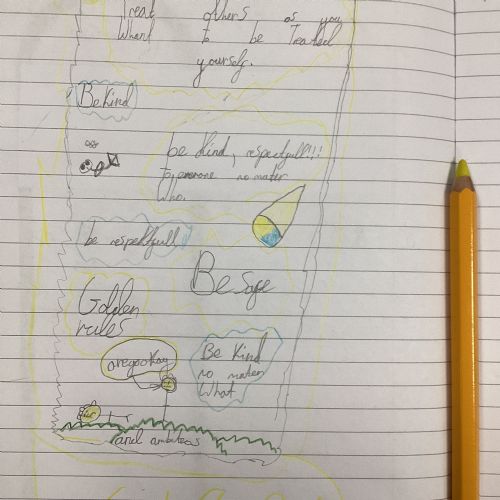 Treat others as you
Want to be Treated
yourself.
Be Kind
be Kind, respectfull!!!
To everone no mater
Who.
be respektfull
Be Safe
Golden
rules
are you okay
Be Kind
no mater
What
and ambiteas